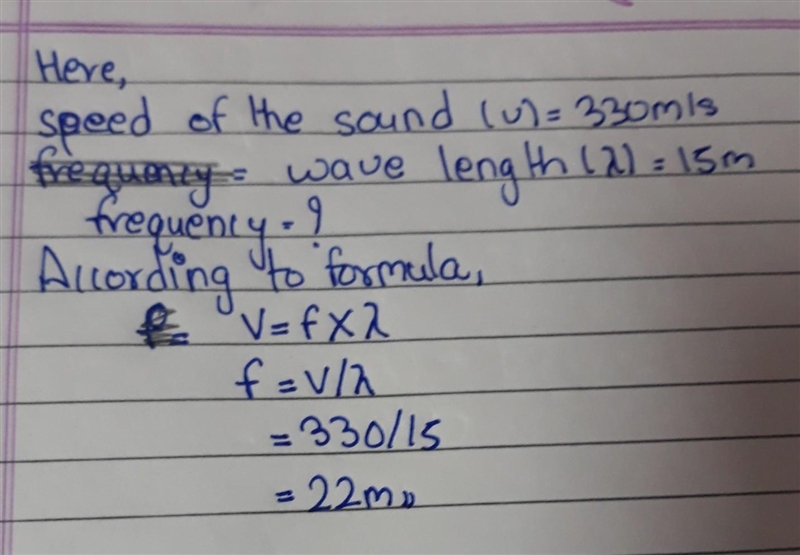 Here,
speed of the sound (v) = 330m/s
frequency = wave length (λ) = 15m
frequency = ?
According to formula,
v = f x λ
f = v/λ
= 330/15
= 22m